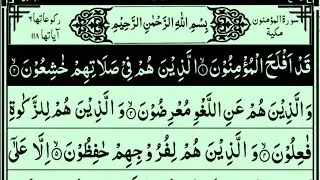 سورة المؤمنون مكية
بِسْمِ اللّٰهِ الرَّحْمٰنِ الرَّحِيْمِ
رکوعاتها ٦ آياتها ١١٨
قَدْ اَفْلَحَ الْمُؤْمِنُوْنَ ۙ۱ الَّذِيْنَ هُمْ فِيْ صَلَاتِهِمْ خٰشِعُوْنَ ۙ۲
وَالَّذِيْنَ هُمْ عَنِ اللَّغْوِ مُعْرِضُوْنَ ۙ۳ وَالَّذِيْنَ هُمْ لِلزَّكٰوةِ
فٰعِلُوْنَ ۙ۴ وَالَّذِيْنَ هُمْ لِفُرُوْجِهِمْ حٰفِظُوْنَ ۙ۵ اِلَّا عَلٰٓى